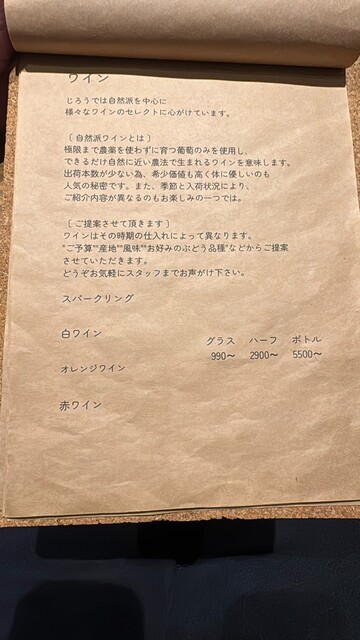 ワイン
じろうでは自然派を中心に
様々なワインのセレクトに心がけています。
[ 自然派ワインとは ]
極限まで農薬を使わずに育つ葡萄のみを使用し、
できるだけ自然に近い農法で生まれるワインを意味します。
出荷本数が少ない為、希少価値も高く体に優しいのも
人気の秘密です。また、季節と入荷状況により、
ご紹介内容が異なるのもお楽しみの一つでは。
[ ご提案させて頂きます ]
ワインはその時期の仕入れによって異なります。
"ご予算""産地""風味""お好みのぶどう品種"などからご提案
させていただきます。
どうぞお気軽にスタッフまでお声がけ下さい。
スパークリング
白ワイン
グラス ハーフ ボトル
990〜 2900〜 5500〜
オレンジワイン
赤ワイン